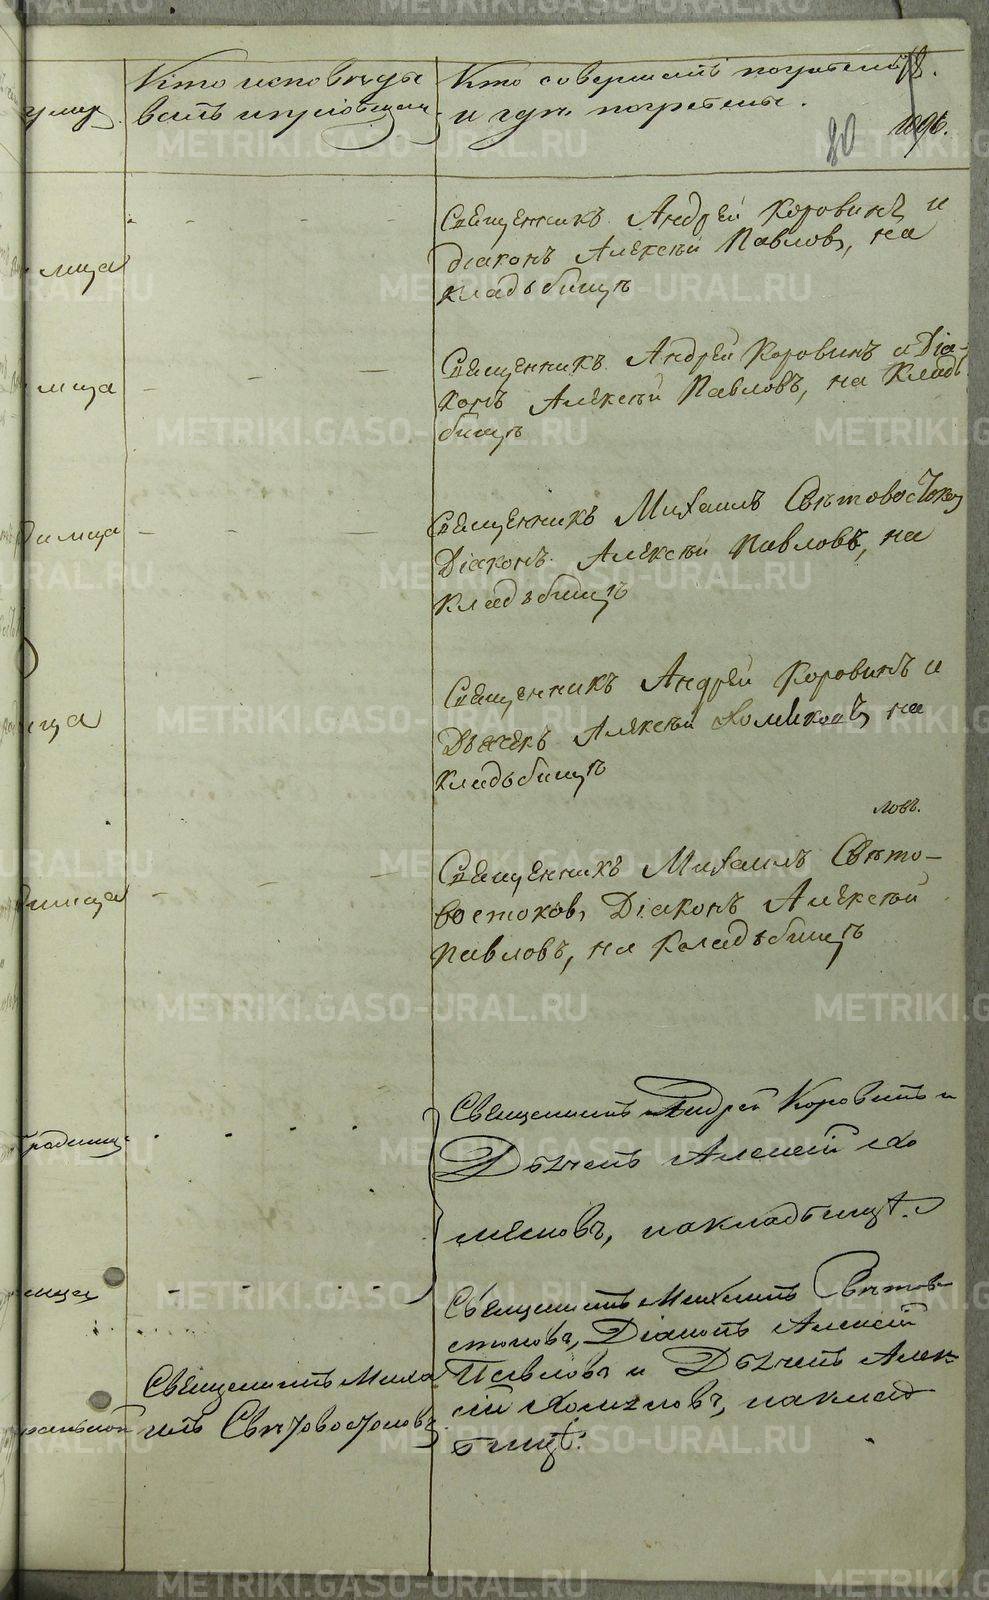 умер.
Кто исповѣды
валъ и пріобщалъ
Кто совершалъ погребеніе
и гдѣ погребены.
78.
80
1096.
Священникъ Андрей Коровинъ и
діаконъ Алексѣй Павловъ, на
кладъбищѣ
Священникъ Андрей Коровинъ и Діа-
конъ Алексѣй Павловъ, на Кладъ
бищѣ
Священникъ Михаилъ Свѣтовостоковъ
Діаконъ Алексѣй Павловъ, на
Кладъбищѣ
Священникъ Андрей Коровинъ и
Дьячекъ Алексѣй Хомяковъ, на
Кладъбищѣ
ловъ.
Священникъ Михаилъ Свѣто-
востоковъ, Діаконъ Алексѣй
Павловъ, на Кладъбищѣ
родимца
Священникъ Андрей Коровинъ и
Дьячекъ Алексѣй Хо
мяковъ, на кладбищѣ.
Священникъ Михаилъ Свѣтово
стоковъ, Діаконъ Алексѣй
Павловъ и Дьячекъ Алек
сѣй Хомяковъ, на клад
бищѣ.
Священникъ Михаи
илъ Свѣтовостоковъ
METRIKI.GASO-URAL.RU